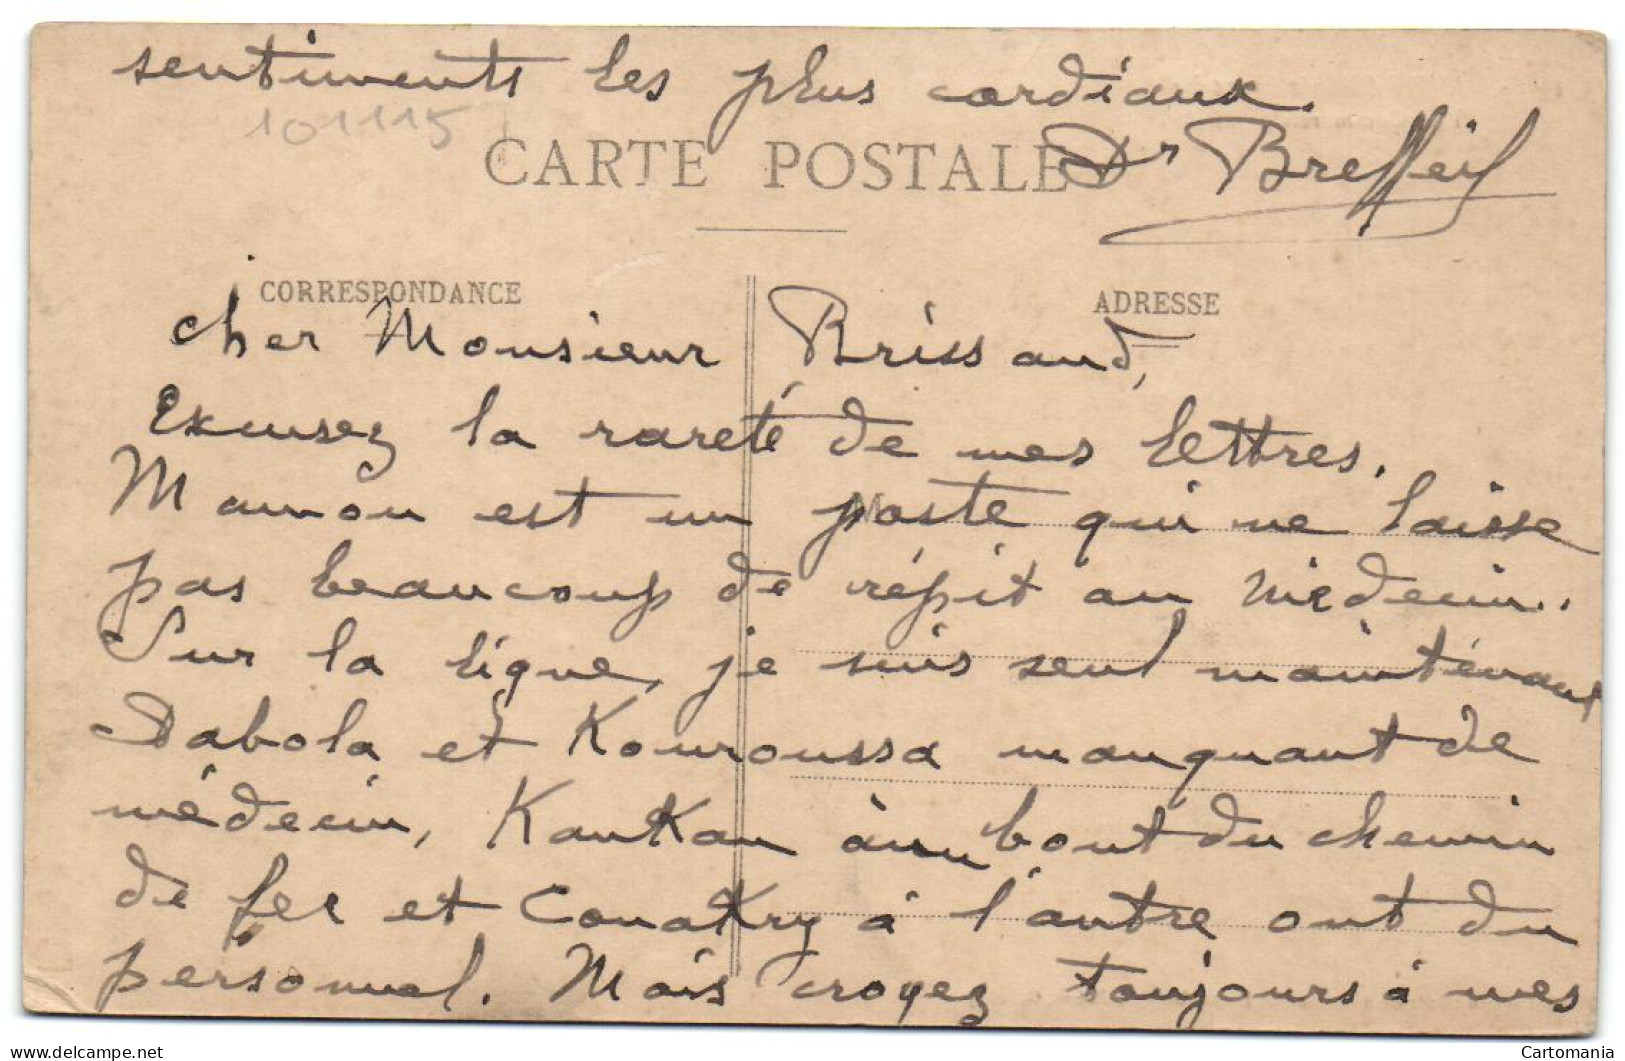 sentiments les plus cordiaux.
101115
CARTE POSTALE
Dr Breffeil
CORRESPONDANCE
ADRESSE
Cher Monsieur Brissaud,
Excusez la rareté de mes lettres.
M
Mamou est un poste qui ne laisse
pas beaucoup de répit au médecin..
Sur la ligne, je suis seul maintenant
Dabola et Kouroussa manquant de
médecin, KanKan à un bout du chemin
de fer et ConaKry à l'autre ont du
personnel. Mais croyez toujours à mes
delcampe.net
Cartomania